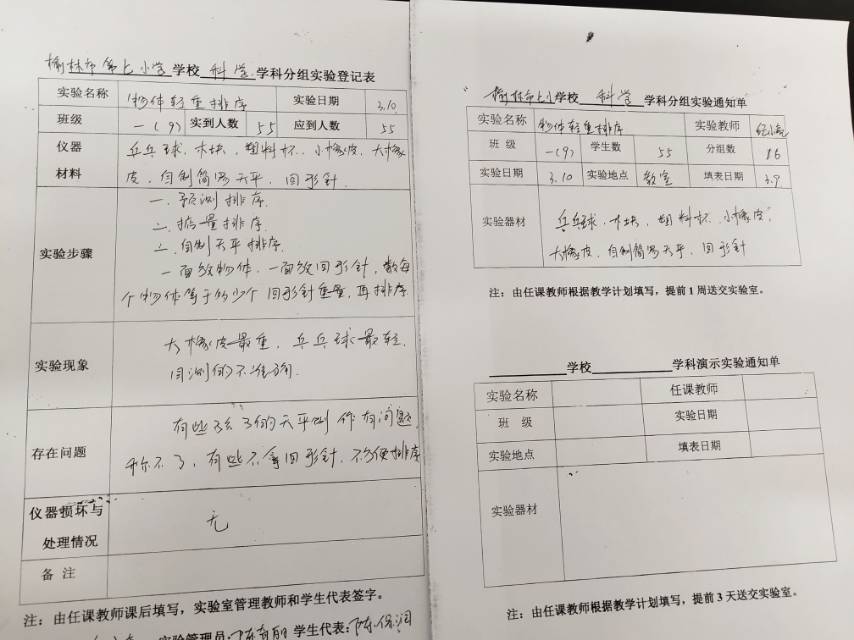 榆林市第七小学学校 科学 学科分组实验登记表
实验名称 物体轻重排序 实验日期 3.10
班级 一(9) 实到人数 55 应到人数 55
仪器 乒乓球、木块、塑料杯、小橡皮、大橡
材料 皮、自制简易天平、回形针
一、预测排序
二、掂量排序
三、自制天平排序
实验步骤
一面放物体,一面放回形针,数每
个物体等于多少个回形针重量,再排序
大橡皮最重,乒乓球最轻
实验现象
目测的不准确
有些孩子的天平制作有问题
存在问题
称不了,有些不拿回形针,不方便排序
仪器损坏与
无
处理情况
备注
注:由任课教师课后填写,实验室管理教师和学生代表签字。
实验管理员: 学生代表:
榆林市七小学校 科学 学科分组实验通知单
实验名称 物体轻重排序 实验教师
班级 一(9) 学生数 55 分组数 16
实验日期 3.10 实验地点 教室 填表日期 3.9
实验器材 乒乓球、木块、塑料杯、小橡皮、
大橡皮、自制简易天平、回形针
注:由任课教师根据教学计划填写,提前1周送交实验室。
学校 学科演示实验通知单
实验名称 任课教师
班级 实验日期
实验地点 填表日期
实验器材
注:由任课教师根据教学计划填写,提前3天送交实验室。